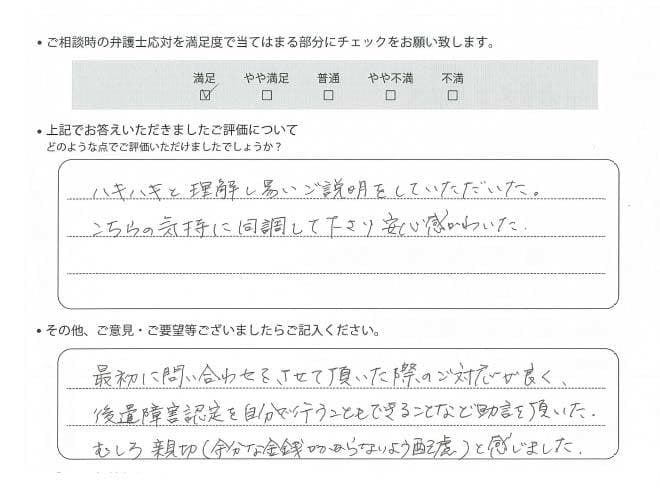 • ご相談時の弁護士応対を満足度で当てはまる部分にチェックをお願い致します。
満足 やや満足 普通 やや不満 不満
☑ ☐ ☐ ☐ ☐
• 上記でお答えいただきましたご評価について
どのような点でご評価いただけましたでしょうか?
ハキハキと理解し易いご説明をしていただいた。
こちらの気持に同調して下さり安心感がわいた.
• その他、ご意見・ご要望等ございましたらご記入ください。
最初に問い合わせをさせて頂いた際のご対応が良く、
後遺障害認定を自分で行うこともできることなど助言を頂いた.
むしろ親切(余分な金銭がかからないよう配慮)と感じました.